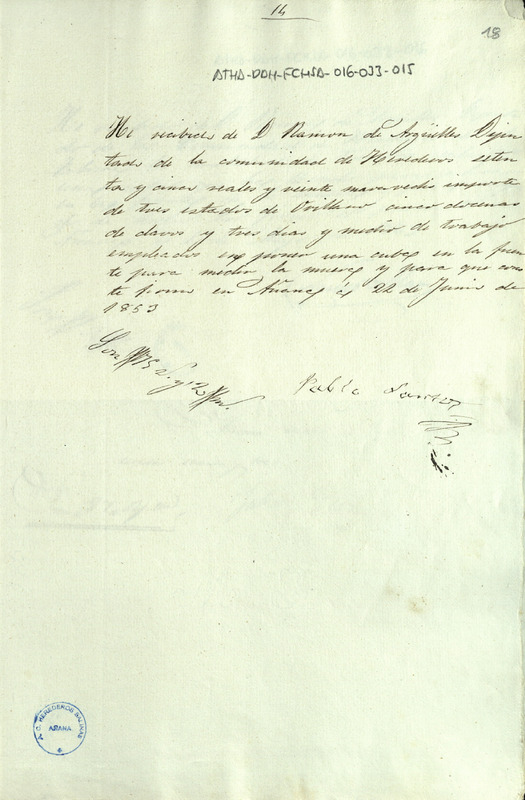 14
18
ATHA-DAH-FCHSA-016-033-015
He recibido de D Ramon de Argüelles Dipu
tado de la comunidad de Herederos seten
ta y cinco reales y veinte maravedis importe
de tres estados de Orillano cinco docenas
de clavos y tres dias y medio de trabajo
empleados en poner una cubeg en la fuen
te para medir la muera y para que cons
te firmo en Añana á 22 de Junio de
1853
Son 75 20
Pablo Santos
A. C. HEREDEROS SALINAS
AÑANA